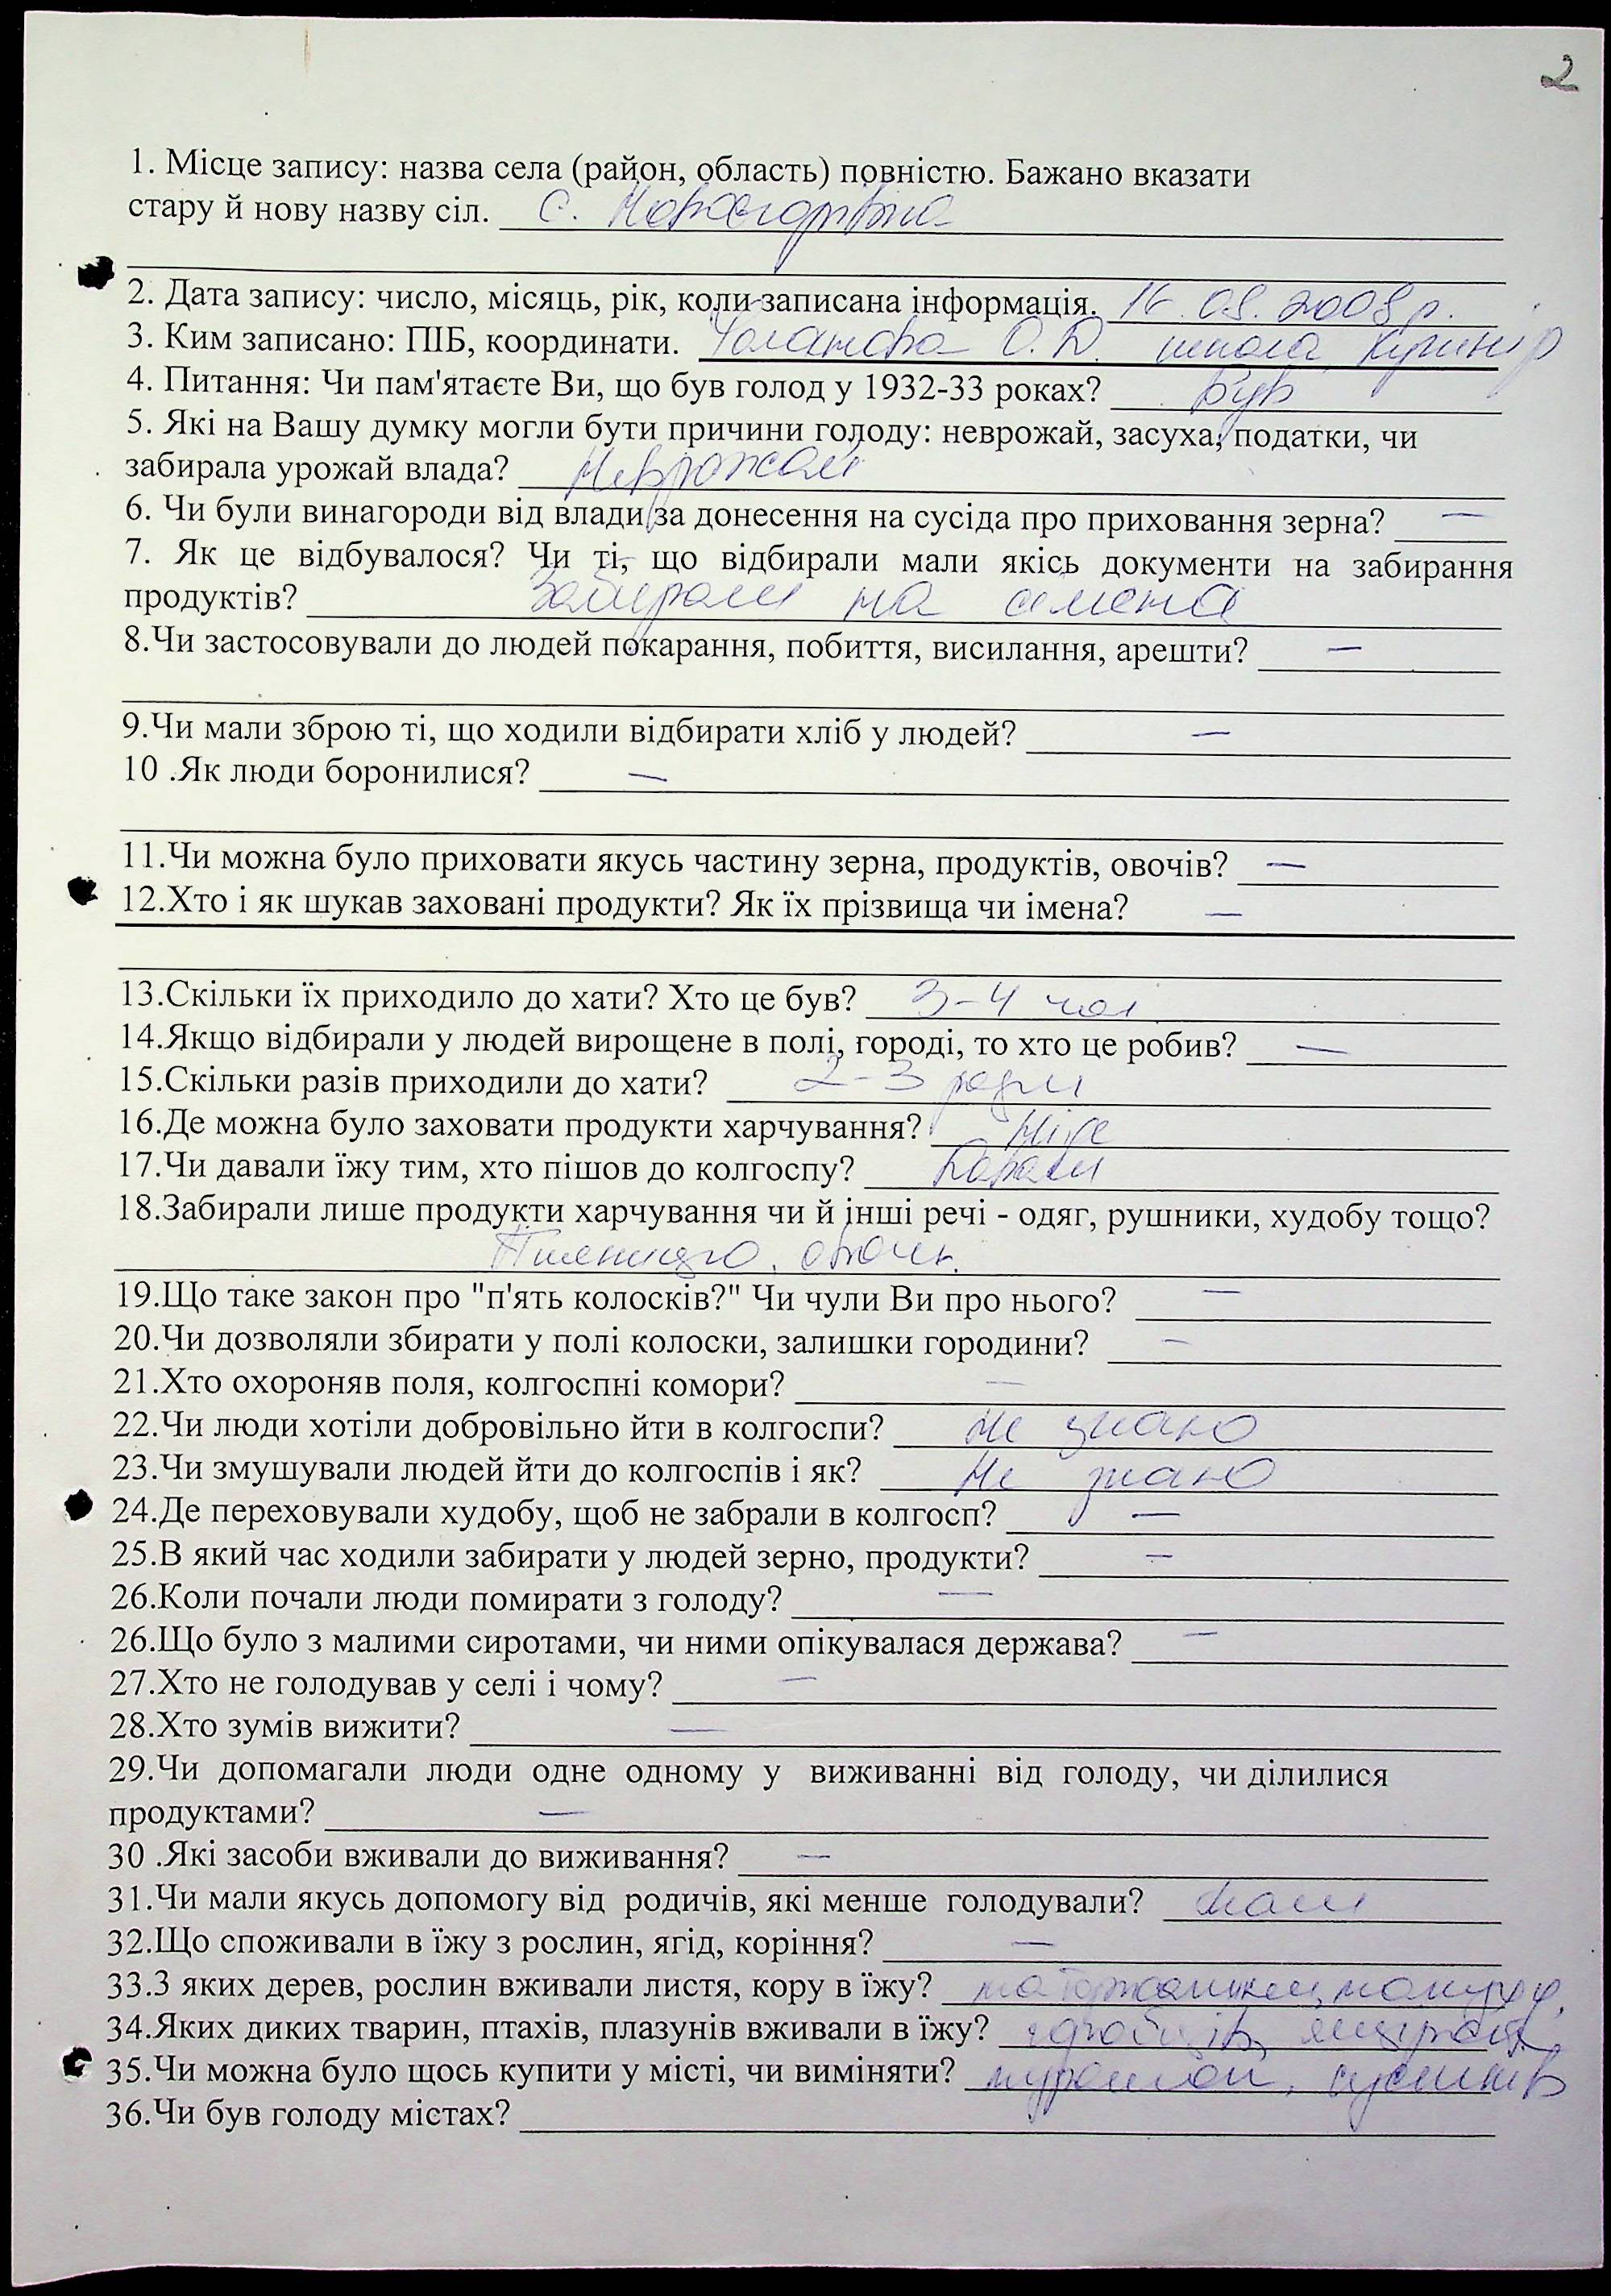 2
1. Місце запису: назва села (район, область) повністю. Бажано вказати
стару й нову назву сіл. с.
2. Дата запису: число, місяць, рік, коли записана інформація. 16.08.2008 р.
3. Ким записано: ПІБ, координати. О. Д. школа,
4. Питання: Чи пам'ятаєте Ви, що був голод у 1932-33 роках? був
5. Які на Вашу думку могли бути причини голоду: неврожай, засуха, податки, чи
забирала урожай влада? Неврожай
6. Чи були винагороди від влади за донесення на сусіда про приховання зерна? —
7. Як це відбувалося? Чи ті, що відбирали мали якісь документи на забирання
продуктів? Забирали на семена
8.Чи застосовували до людей покарання, побиття, висилання, арешти? —
9.Чи мали зброю ті, що ходили відбирати хліб у людей? —
10 .Як люди боронилися? —
11.Чи можна було приховати якусь частину зерна, продуктів, овочів? —
12.Хто і як шукав заховані продукти? Як їх прізвища чи імена? —
13.Скільки їх приходило до хати? Хто це був? 3-4 чол
14.Якщо відбирали у людей вирощене в полі, городі, то хто це робив? —
15.Скільки разів приходили до хати? 2-3 рази
16.Де можна було заховати продукти харчування? Ніде
17.Чи давали їжу тим, хто пішов до колгоспу? Давали
18.Забирали лише продукти харчування чи й інші речі - одяг, рушники, худобу тощо?
Пшеницю, овочі.
19.Що таке закон про "п'ять колосків?" Чи чули Ви про нього? —
20.Чи дозволяли збирати у полі колоски, залишки городини? —
21.Хто охороняв поля, колгоспні комори? —
22.Чи люди хотіли добровільно йти в колгоспи? Не знаю
23.Чи змушували людей йти до колгоспів і як? Не знаю
24.Де переховували худобу, щоб не забрали в колгосп? —
25.В який час ходили забирати у людей зерно, продукти? —
26.Коли почали люди помирати з голоду? —
26.Що було з малими сиротами, чи ними опікувалася держава? —
27.Хто не голодував у селі і чому? —
28.Хто зумів вижити? —
29.Чи допомагали люди одне одному у виживанні від голоду, чи ділилися
продуктами? —
30 .Які засоби вживали до виживання? —
31.Чи мали якусь допомогу від родичів, які менше голодували? мали
32.Що споживали в їжу з рослин, ягід, коріння? —
33.З яких дерев, рослин вживали листя, кору в їжу? макуху,
34.Яких диких тварин, птахів, плазунів вживали в їжу? горобців,
35.Чи можна було щось купити у місті, чи виміняти? сусликів
36.Чи був голоду містах?